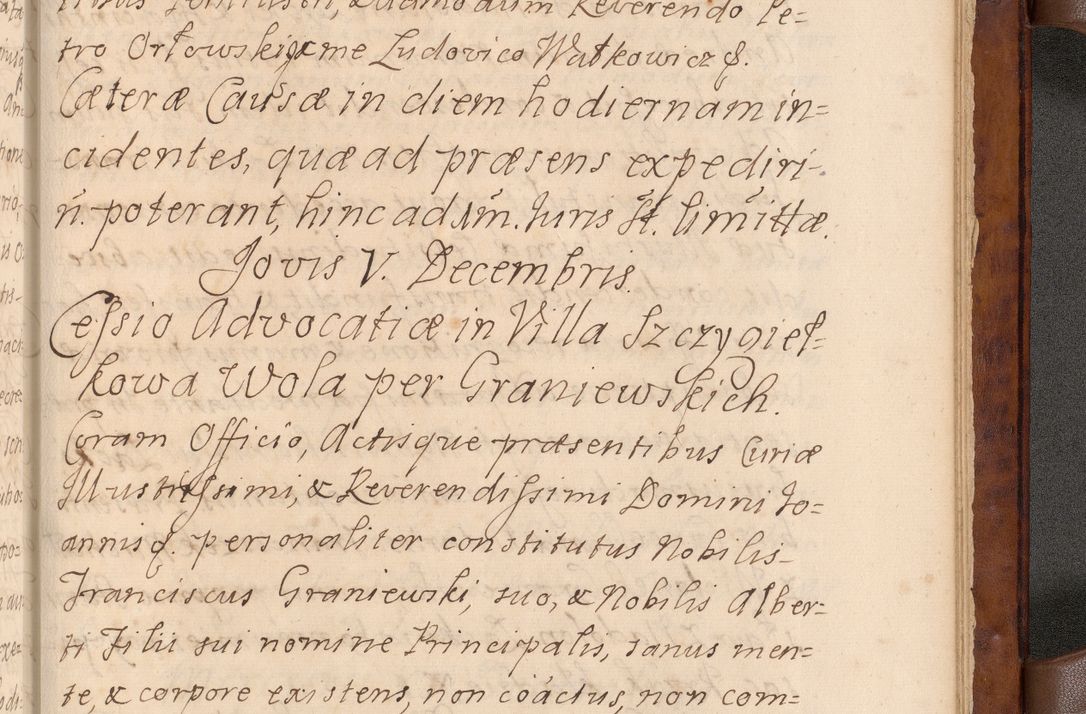 & admodum Reverendo Pe=
tro Orłowski, & me Ludovico Watkowicz &.
Cæteræ Causæ in diem hodiernam in=
cidentes, quæ ad præsens expediri
n̄. poterant, hinc ad Juris limittæ.
Jovis V. Decembris.
Cessio Advocatiæ in Villa Szczygieł=
kowa Wola per Graniewskich.
Coram Officio, Actisque præsentibus Curiæ
Illustrissimi, & Reverendissimi Domini Jo=
annis &. personaliter constitutus Nobilis
Franciscus Graniewski, suo, & Nobilis Alber=
ti Filii sui nomine Principalis, sanus men=
te, & corpore existens, non coactus, non com=